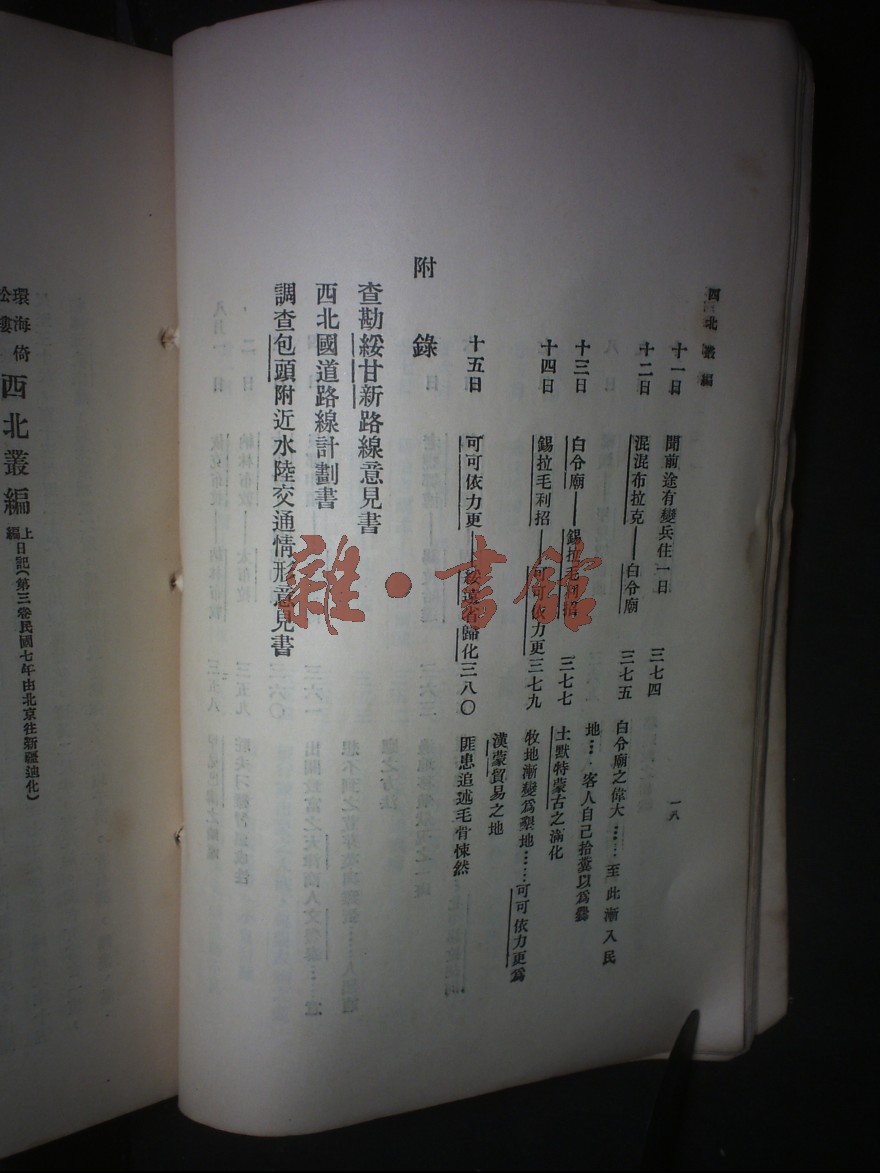 西北叢編
十一日 聞前途有變兵住一日 三七四
十二日 混混布拉克——白令廟 三七五 白令廟之偉大……至此漸入民
地……客人自己拾糞以為爨
十三日 白令廟——錫拉毛利招 三七七 土默特蒙古之滿化
十四日 錫拉毛利招——可可依力更 三七九 牧地漸變爲墾地……可可依力更爲
漢蒙貿易之地
十五日 可可依力更——綏遠省歸化 三八〇 匪患追述毛骨悚然
一八
附錄
查勘綏甘新路線意見書
西北國道路線計劃書
調查包頭附近水陸交通情形意見書
環海倚
松樓
西北叢編
上編
日記(第三卷民國七年由北京往新疆迪化)
雜·書館